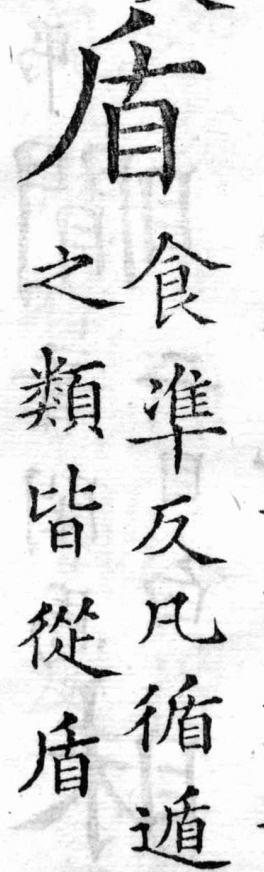 盾
食準反凡循遁
之類皆從盾